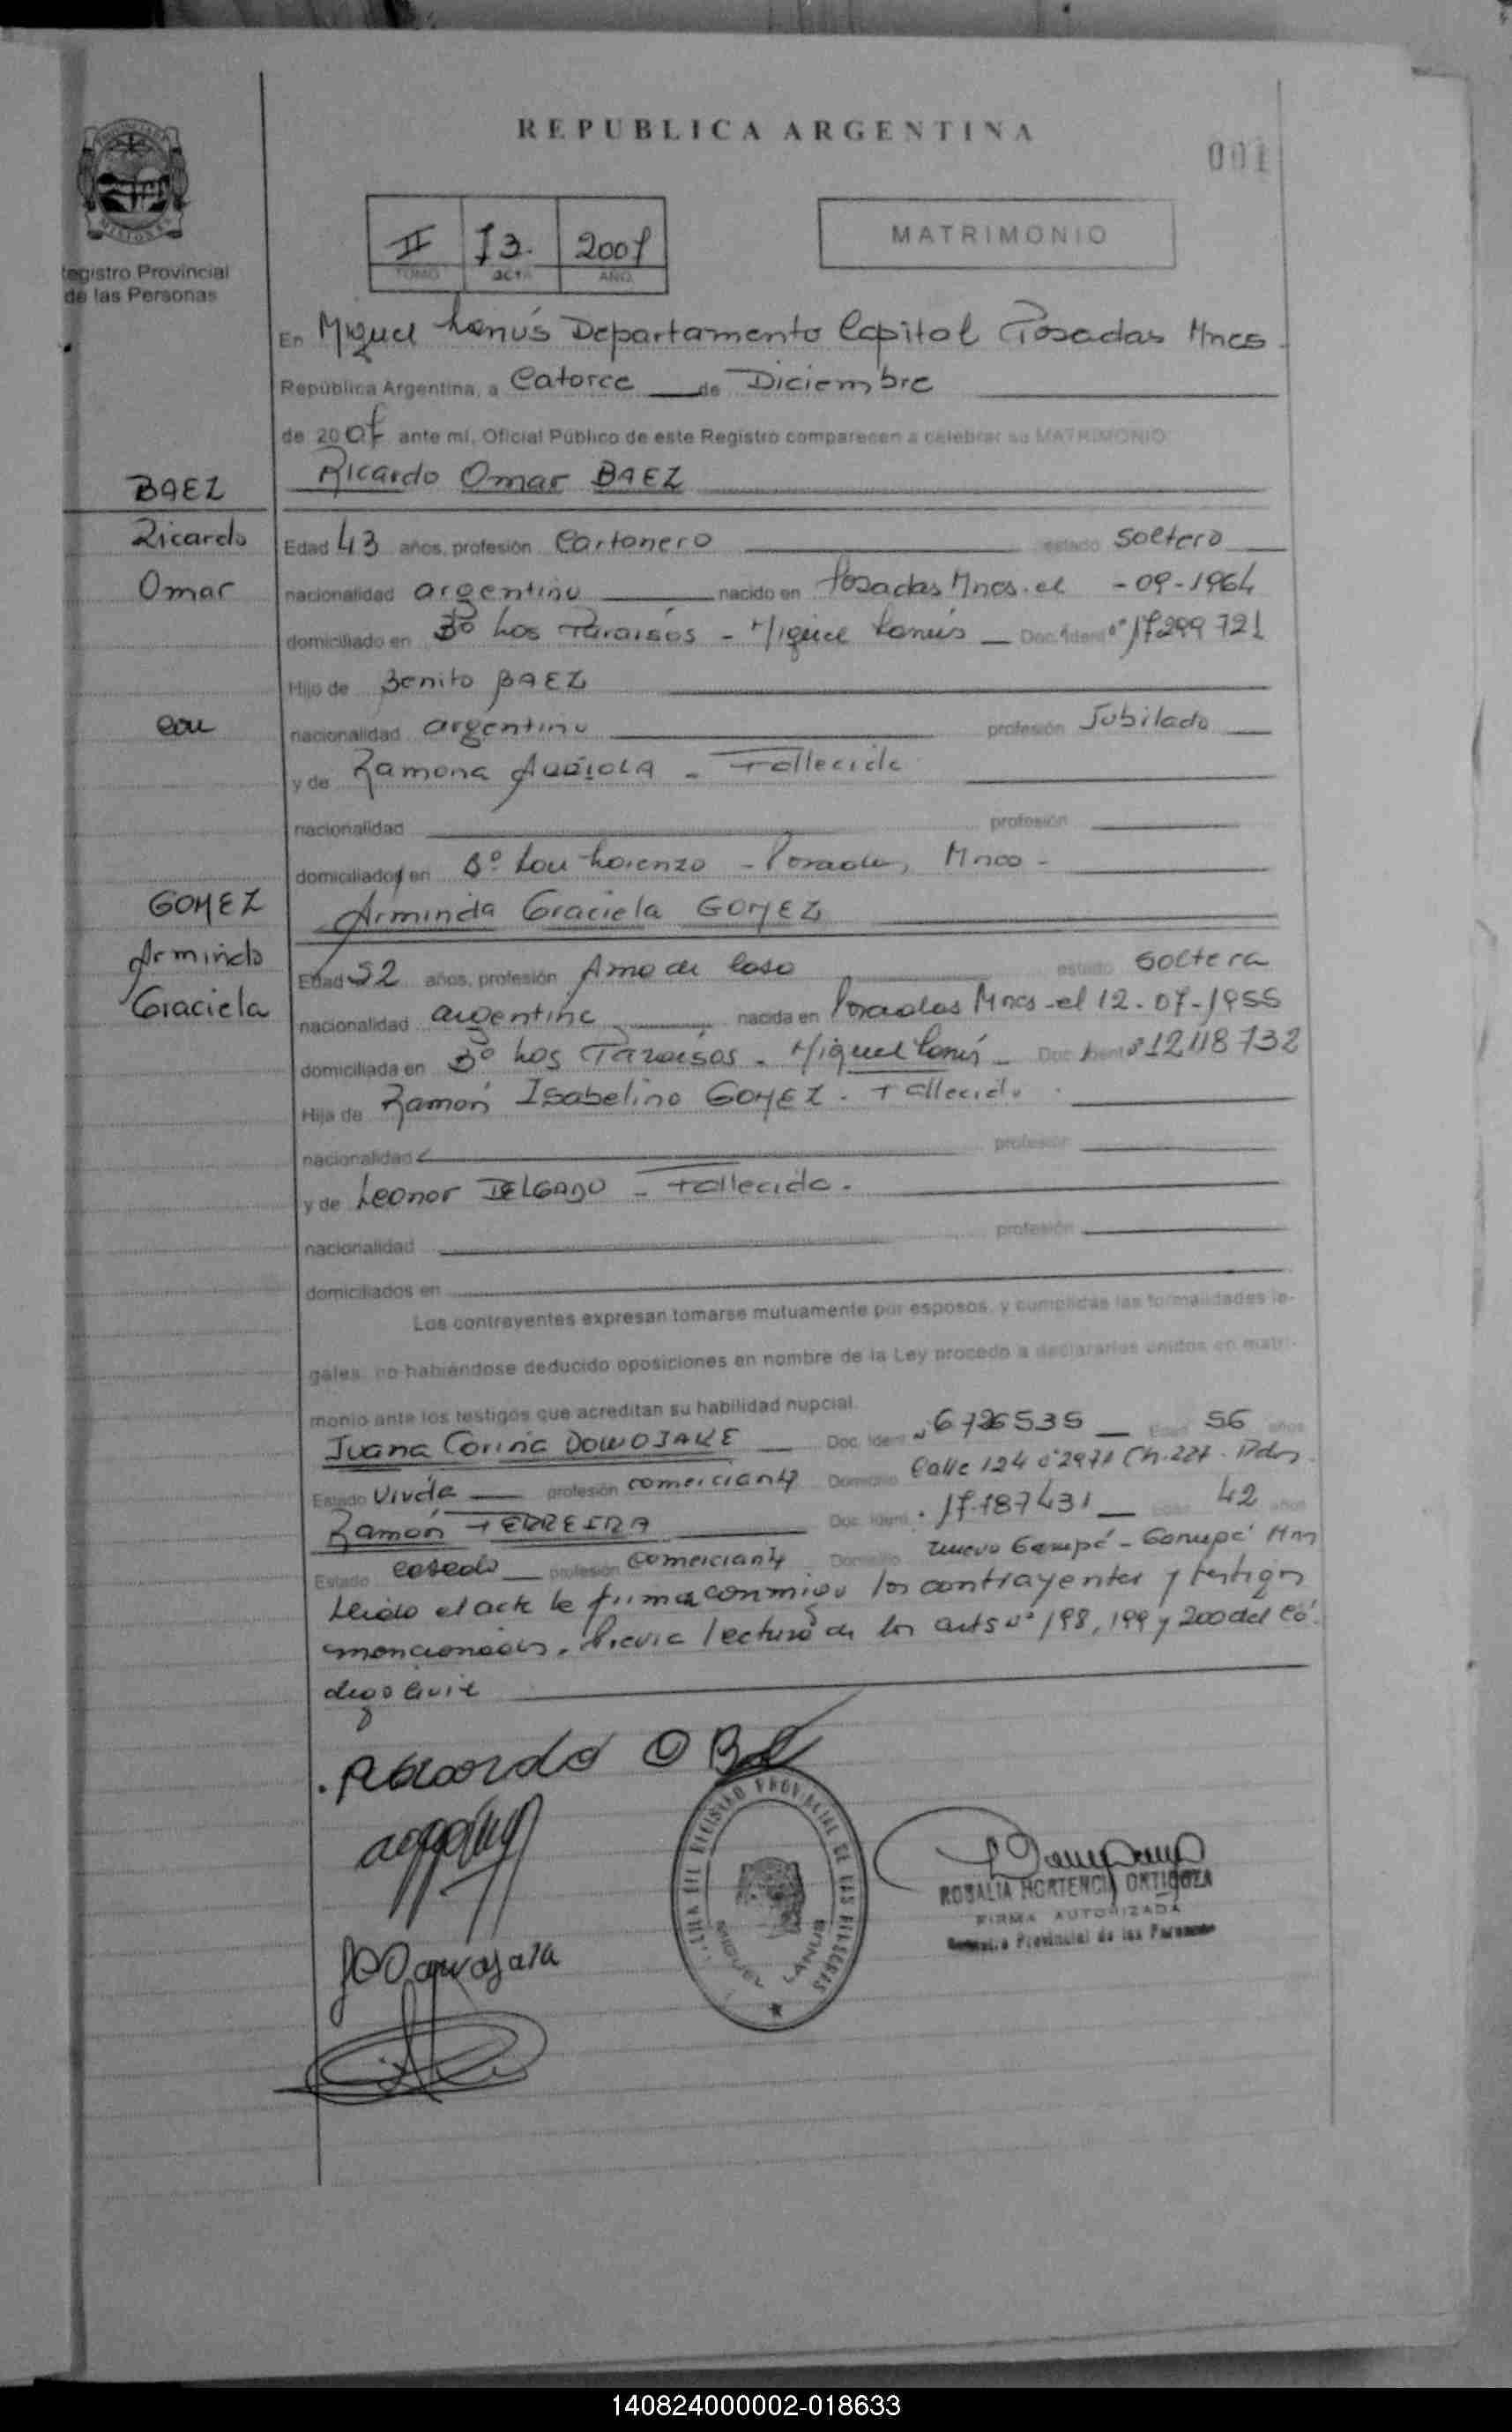 REPUBLICA ARGENTINA
001
PROVINCIA DE
MISIONES
Registro Provincial
de las Personas
II 73. 2007
TOMO ACTA AÑO
MATRIMONIO
En Miguel Lanús Departamento Capital Posadas Mnes.
República Argentina, a Catorce de Diciembre
de 2007 ante mí, Oficial Público de este Registro comparecen a celebrar su MATRIMONIO
BAEZ
Ricardo Omar BAEZ
Ricardo
Edad 43 años, profesión Cartonero estado soltero
Omar
nacionalidad argentino nacido en Posadas Mnes. el -09-1964
domiciliado en Bº Los Paraisos - Miguel Lanús Doc. Ident. nº 17299721
Hijo de Benito BAEZ
con
nacionalidad argentino profesión Jubilado
y de Ramona - Fallecida
nacionalidad profesión
domiciliados en Bº San Lorenzo - Posadas, Mnes -
GOMEZ
Arminda Graciela GOMEZ
Arminda
Edad 52 años, profesión Ama de Casa estado soltera
Graciela
nacionalidad argentina nacida en Posadas Mnes - el 12-07-1955
domiciliada en Bº Los Paraisos - Miguel Lanús - Doc. Ident. nº 12118732
Hija de Ramón Isabelino GOMEZ - Fallecido.
nacionalidad profesión
y de Leonor DELGADO - Fallecida.
nacionalidad profesión
domiciliados en
Los contrayentes expresan tomarse mutuamente por esposos, y cumplidas las formalidades le-
gales, no habiéndose deducido oposiciones en nombre de la Ley procedo a declararlos unidos en matri-
monio ante los testigos que acreditan su habilidad nupcial.
Juana Corina Doc. Ident. nº 6726535 Edad 56 años
Estado Viuda profesión comerciante Domicilio Calle 124 nº 2971 Ch. 227 - Pdas
Ramón FERREIRA Doc. Ident. 17.787431 Edad 42 años
Estado casado profesión Comerciante Domicilio Nuevo Garupá - Garupá Mnes
Leido el acta la firma conmigo los contrayentes y testigos
mencionados, Previa lectura de los arts nº 198, 199 y 200 del Có-
digo Civil
Ricardo O B
REGISTRO PROVINCIAL DE LAS PERSONAS
MIGUEL LANUS
ROSALIA HORTENCIA ORTIGOZA
FIRMA AUTORIZADA
Registro Provincial de las Personas
140824000002-018633